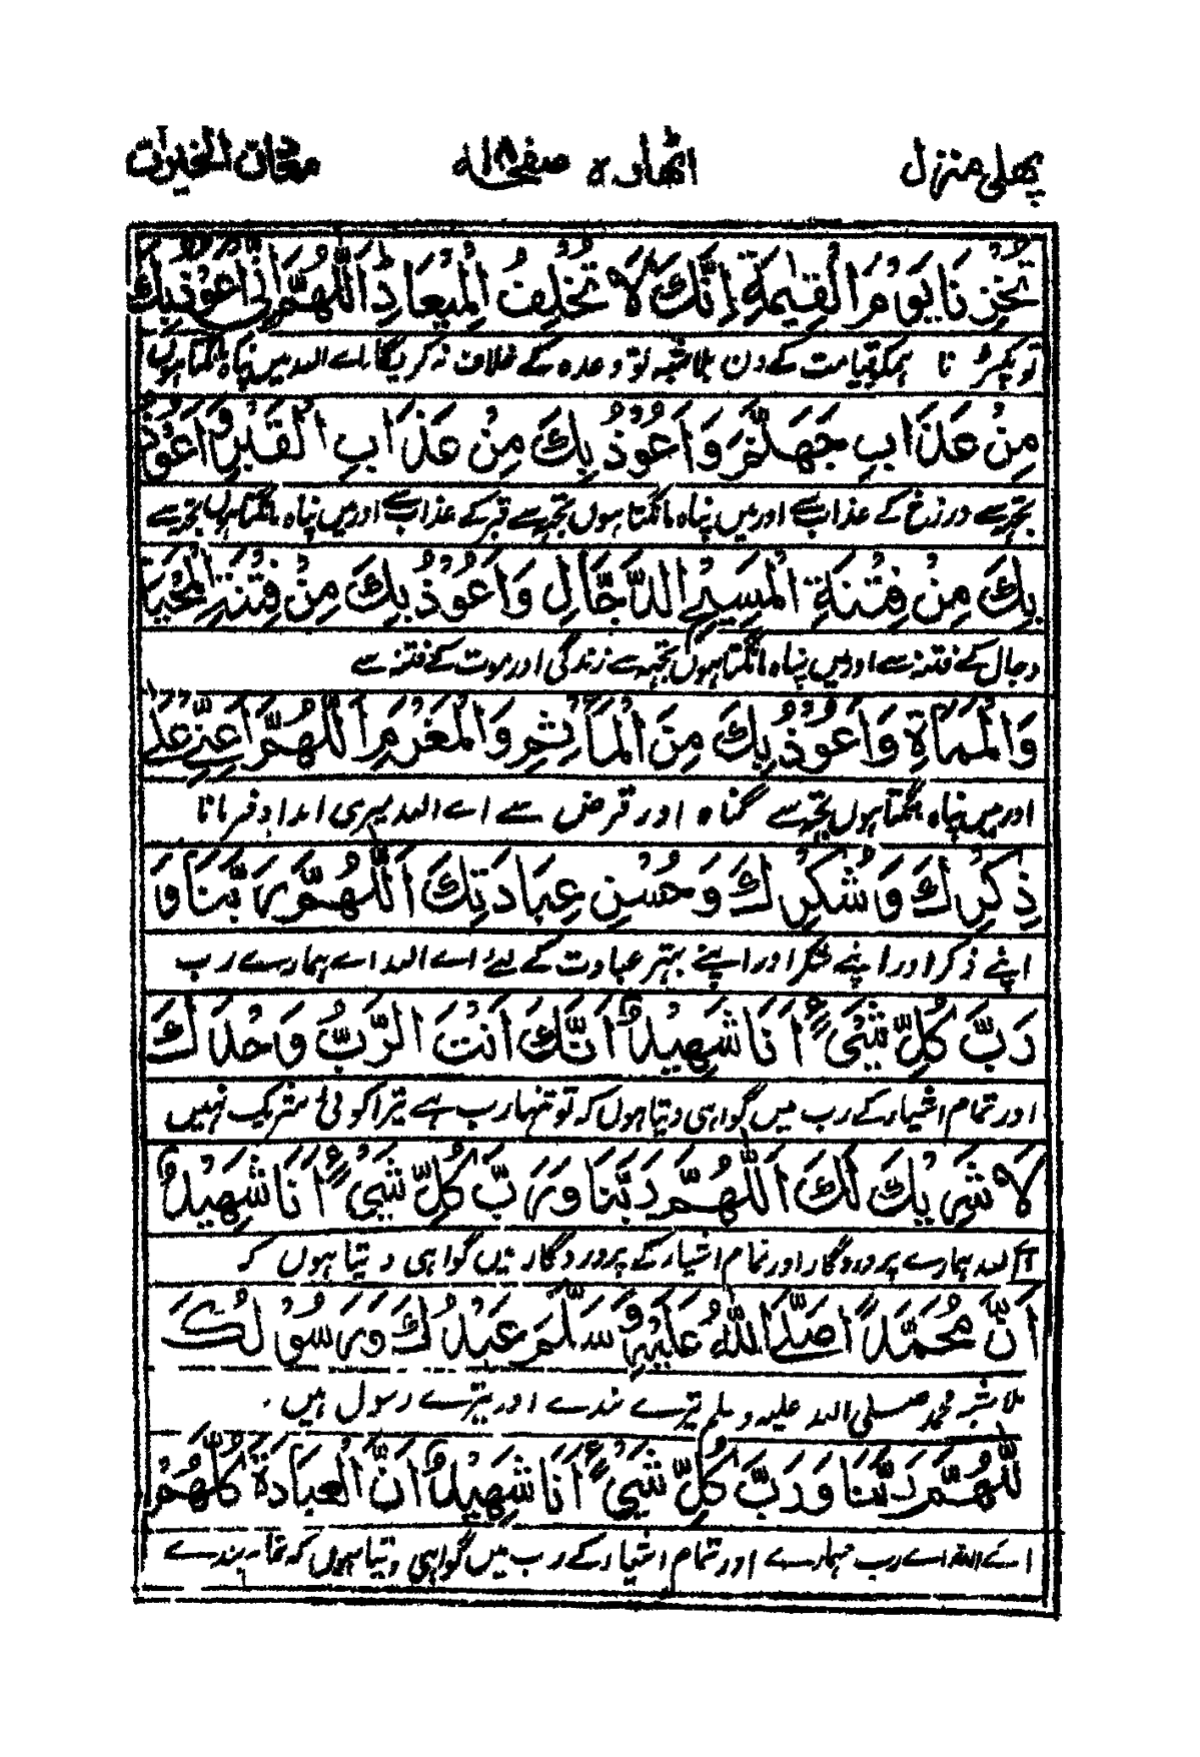 پہلی منزل اٹھارہ صفحہ ۱۸ معدن الخیرات
تُخْزِنَا يَوْمَ الْقِيٰمَةِ إِنَّكَ لَا تُخْلِفُ الْمِيْعَادَ اَللّٰهُمَّ اِنِّيْ اَعُوْذُ بِكَ
تو پکڑنا ہمکو قیامت کے دن بلا شبہ تو وعدہ کے خلاف نہ کریگا اے اللہ میں پناہ مانگتا ہوں
مِنْ عَذَابِ جَهَنَّمَ وَاَعُوْذُ بِكَ مِنْ عَذَابِ الْقَبْرِ وَاَعُوْذُ
تجھ سے دوزخ کے عذاب سے اور میں پناہ مانگتا ہوں تجھ سے قبر کے عذاب سے اور میں پناہ مانگتا ہوں تجھ سے
بِكَ مِنْ فِتْنَةِ الْمَسِيْحِ الدَّجَّالِ وَاَعُوْذُ بِكَ مِنْ فِتْنَةِ الْمَحْيَا
دجال کے فتنہ سے اور میں پناہ مانگتا ہوں تجھ سے زندگی اور موت کے فتنہ سے
وَالْمَمَاةِ وَاَعُوْذُ بِكَ مِنَ الْمَأْثِمِ وَالْمَغْرَمِ اَللّٰهُمَّ اَعِنِّيْ عَلٰى
اور میں پناہ مانگتا ہوں تجھ سے گناہ اور قرض سے اے اللہ میری امداد فرمانا
ذِكْرِكَ وَشُكْرِكَ وَحُسْنِ عِبَادَتِكَ اَللّٰهُمَّ رَبَّنَا وَ
اپنے ذکر اور اپنے شکر اور اپنے بہتر عبادت کے لئے اے اللہ اے ہمارے رب
رَبَّ كُلِّ شَيْءٍ اَنَا شَهِيْدٌ اَنَّكَ اَنْتَ الرَّبُّ وَحْدَكَ
اور تمام اشیاء کے رب میں گواہی دیتا ہوں کہ تو تنہا رب ہے تیرا کوئی شریک نہیں
لَا شَرِيْكَ لَكَ اَللّٰهُمَّ رَبَّنَا وَرَبَّ كُلِّ شَيْءٍ اَنَا شَهِيْدٌ
اے اللہ ہمارے پروردگار اور تمام اشیاء کے پروردگار میں گواہی دیتا ہوں کہ
اَنَّ مُحَمَّدًا صَلَّى اللّٰهُ عَلَيْهِ وَسَلَّمَ عَبْدُكَ وَرَسُوْلُكَ
بلا شبہ محمد صلی اللہ علیہ وسلم تیرے بندے اور تیرے رسول ہیں.
اللّٰهُمَّ رَبَّنَا وَرَبَّ كُلِّ شَيْءٍ اَنَا شَهِيْدٌ اَنَّ الْعِبَادَةَ كُلَّهُمْ
اے اللہ اے رب ہمارے اور تمام اشیاء کے رب میں گواہی دیتا ہوں کہ تمام بندے